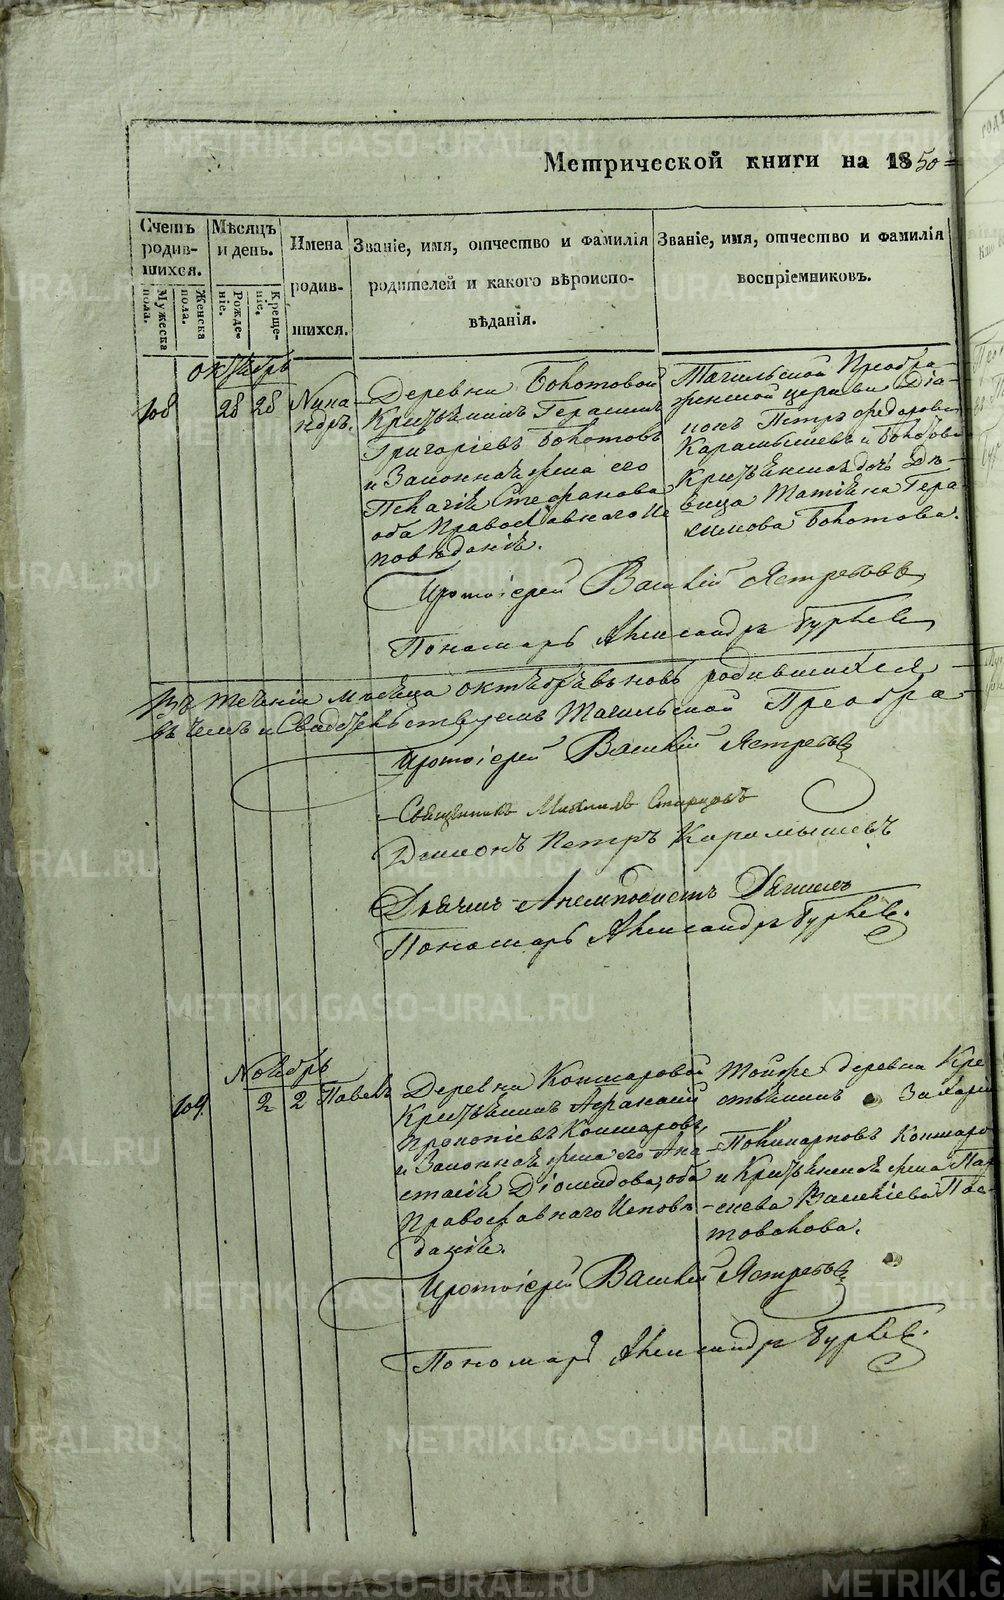 Метрической книги на 1850
Счетъ родив-шихся.
Мужеска пола.
Женска пола.
Мѣсяцъ и день.
Рожде-ніе.
Креще-ніе.
Имена родив-шихся.
Званіе, имя, отчество и фамилія
родителей и какого вѣроиспо-
вѣданія.
Званіе, имя, отчество и фамилія
воспріемниковъ.
октябрь
108
28 28
Никандръ.
Деревни Бокотовой
Крестьянинъ Герасимъ
Григоріевъ Бокотовъ
и Законная жена его
Стефанова
оба Православнаго Ис
повѣданія.
Тагильской Преобра
женской церкви Діа-
конъ Петръ Федоровъ
Карамышевъ и
Крестьянская дочь Дѣ-
вица Татіяна Гера
симова Бокотова.
Протоіерей Василій Ястребовъ
Пономарь Александръ Гурьевъ
Въ теченіи мѣсяца октября вновь родившихся
въ чемъ и Свидѣтельствуемъ Тагильской Преобра-
Протоіерей Василій Ястребовъ
Священникъ Михаилъ Старцовъ
Діаконъ Петръ Карамышевъ
Дьячекъ Анемподистъ
Пономарь Александръ Гурьевъ.
Ноябрь
109
2 2
Павелъ
Деревни Комшаровой
Крестьянинъ Афанасій
Прокопіевъ Комшаровъ,
и Законная жена его Ана-
стасія Діомидова, оба
Православнаго Исповѣ-
данія.
тойже деревни Кре
стьянинъ Захаръ
Поликарповъ Комшаро
и Крестьянская жена Пар
Василіева Пос-
Протоіерей Василій Ястребовъ
Пономарь Александръ Гурьевъ.
METRIKI.GASO-URAL.RU